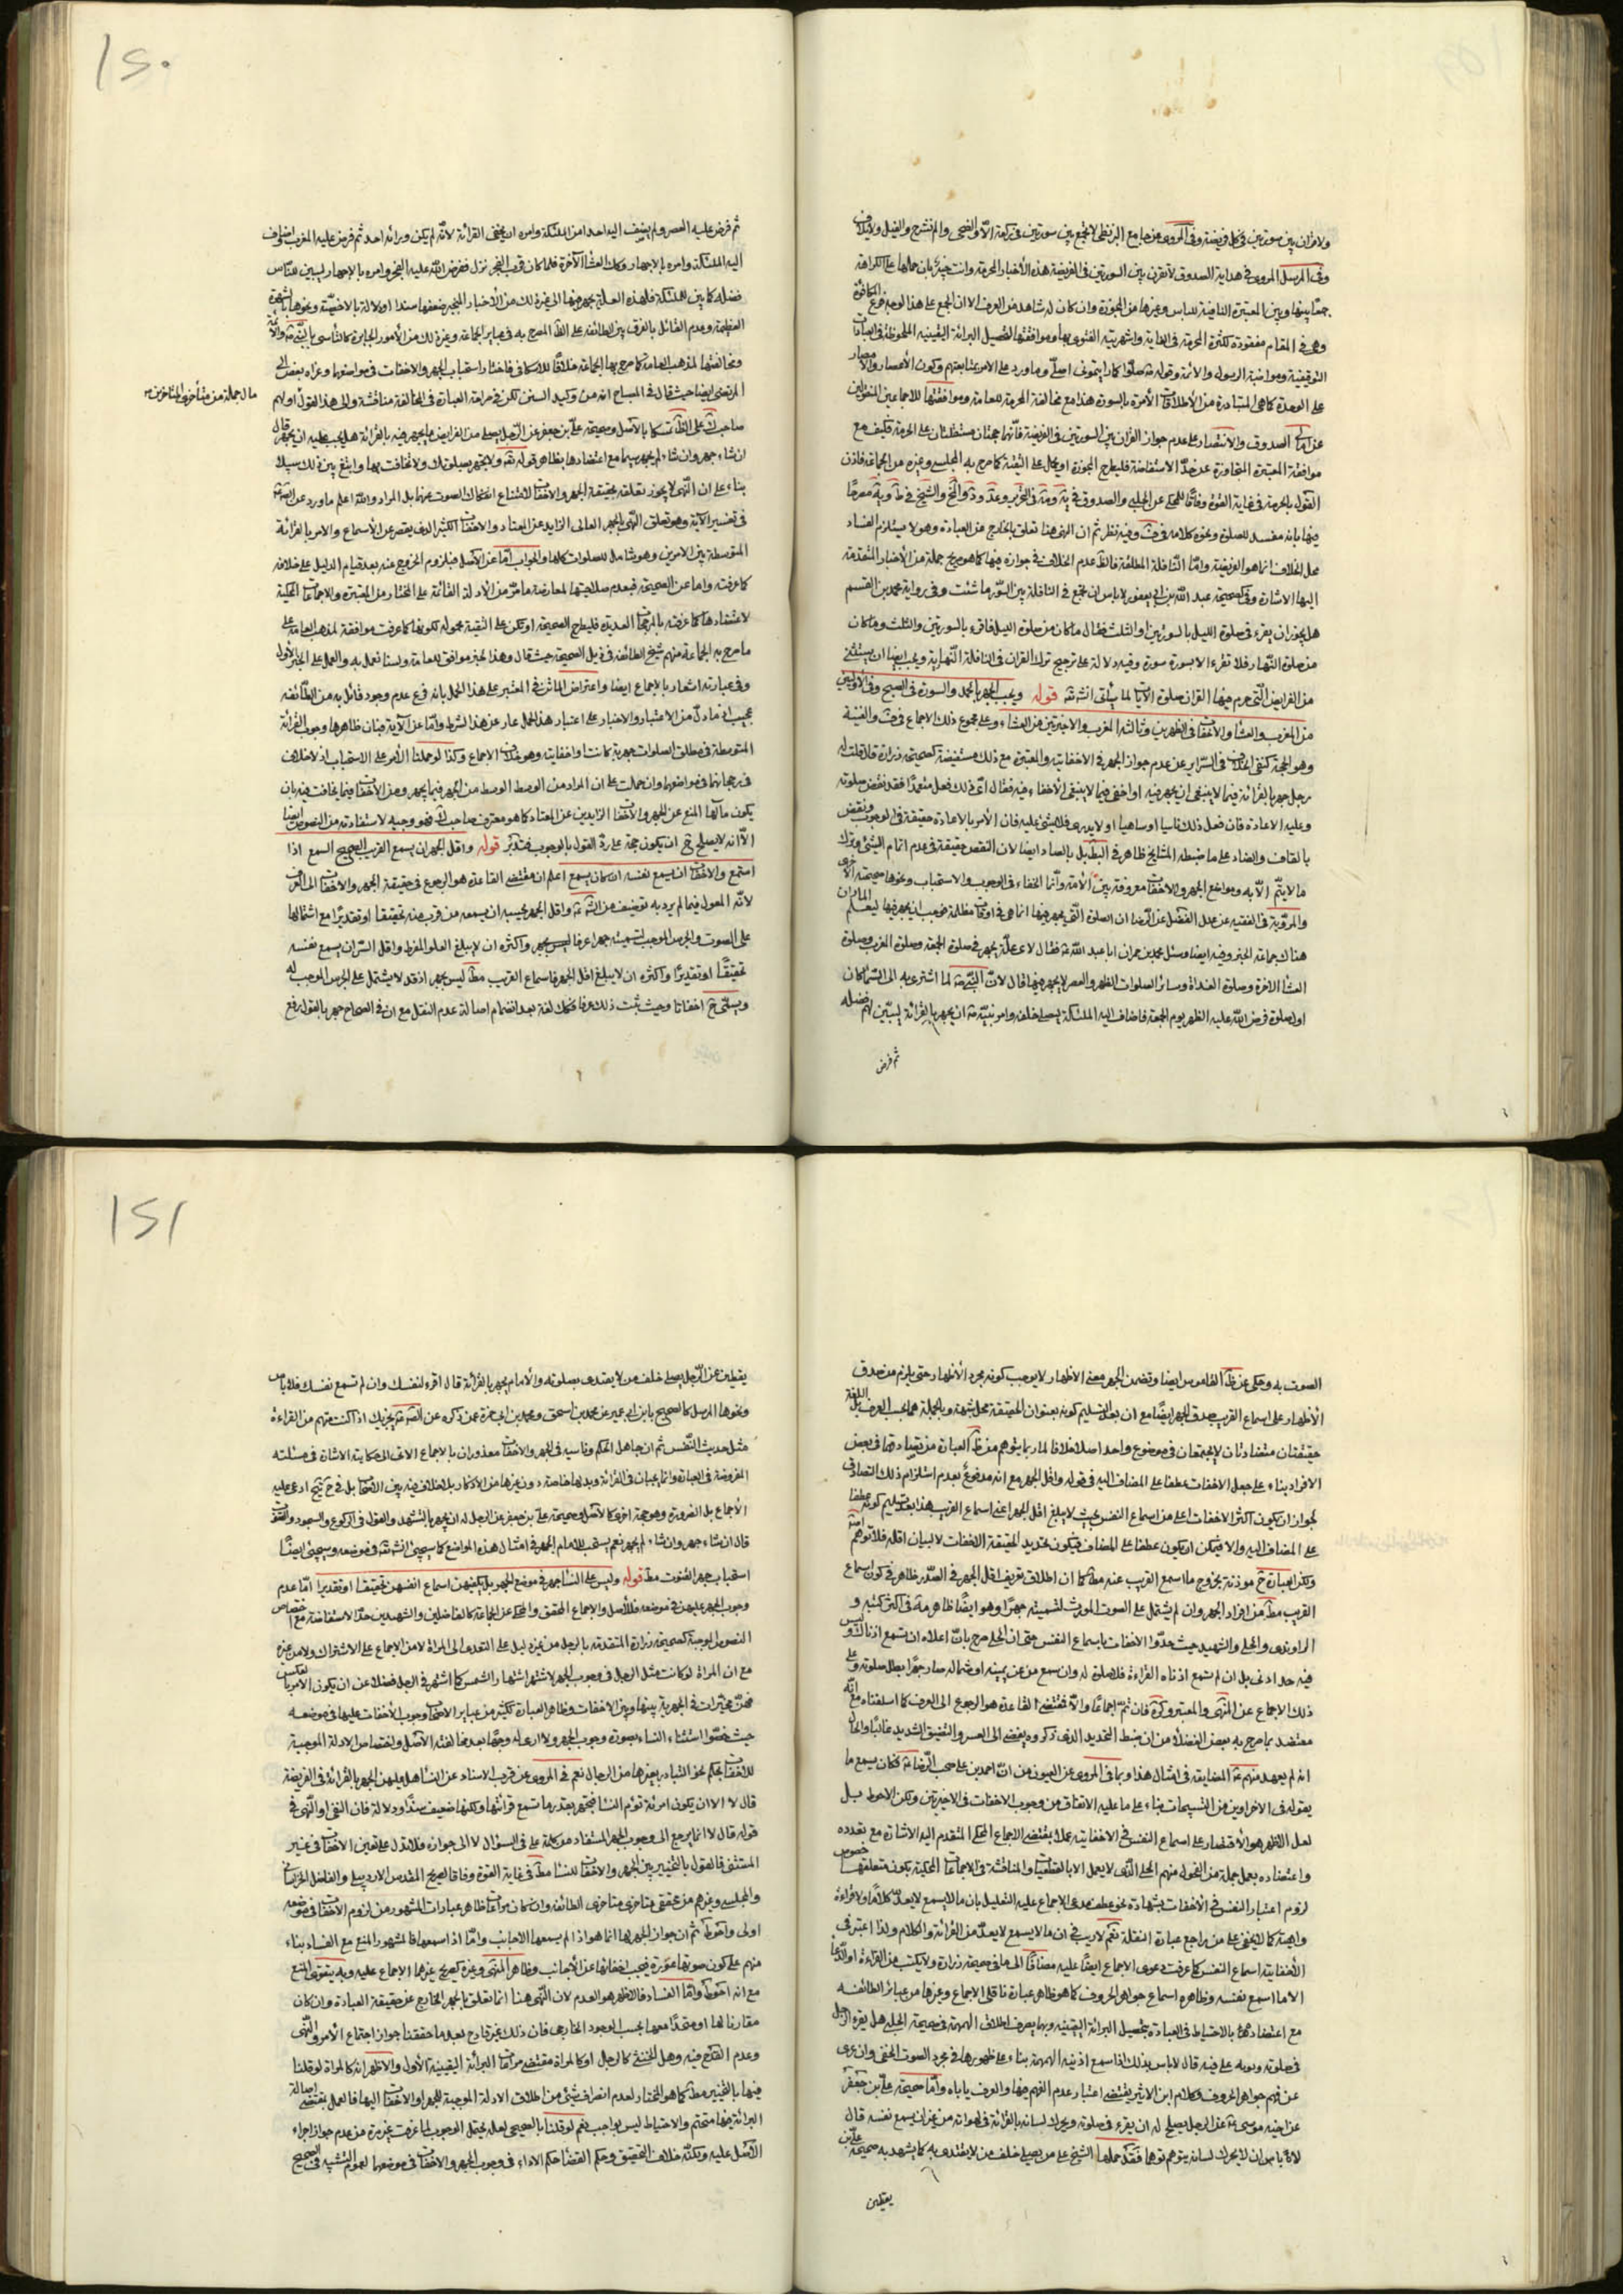 ولا قران بين سورتين في كل فريضة وفي المروي عن جامع البزنطي لا تجمع بين سورتين في ركعة الا والضحى والم نشرح والفيل ولايلاف
وفي المرسل المروي في هداية الصدوق لا تقرن بين السورتين في الفريضة هذه الأخبار المحرمة وانت خبير بان حملها على الكراهة
جمعا بينها وبين المعتبرة النافية للباس وغيرها من المجوزة وان كان له شاهد من العرف الا ان الجمع على هذا الوجه فرع المكافؤة
وهي في المقام مفقودة لكثرة المحرمة في الغاية واشهريته الفتوى بها وموافقتها لتحصيل البرائة اليقينية الملحوظة في العبادات
التوقيفية ومواظبة الرسول والائمة وقوله صلوا كما رايتموني اصلي وما ورد على الامر بمتابعتهم وكون الأعصار والأمصار
على الوحدة كما هي المتبادرة من الأطلاقات الأمرة بالسورة هذا مع مخالفة المحرمة للعامة وموافقتها للاجماعين المنقولين
عن الصدوق والانتصار على عدم جواز القران بين السورتين في الفريضة فانهما حجتان مستقلتان على الحرمة فكيف مع
موافقة المعتبرة المتجاوزة عن حد الاستفاضة فليطرح المجوزة او يحمل على التقية كما صرح به المجلسي وغيره من الجماعة فاذن
القول بالحرمة في غاية القوة وفاقا للمحكي عن الحلبي والصدوق في
فيها بانه مفسد للصلوة ونحوه كلامه في وفيه نظر ثم ان النهي هنا تعلق بالخارج عن العبادة وهو لا يستلزم الفساد
محل الخلاف انما هو الفريضة واما النافلة المطلقة فالظ عدم الخلاف في جوازه فيها كما هو صريح جملة من الأخبار المتقدمة
اليها الاشارة وفي صحيحة عبد الله بن ابي يعفور لا باس ان تجمع في النافلة بين السور ما شئت وفي رواية محمد بن القسم
هل يجوز ان يقرء في صلوة الليل بالسورتين او الثلث فقال ما كان من صلوة الليل فاقرء بالسورتين والثلث وما كان
من صلوة النهار فلا تقرء الا بسورة سورة وفيه دلالة على ترجيح ترك القران في النافلة النهارية ويجب ايضا ان يستثنى
من الفرايض التي حرم فيها القران صلوة الآيات لما يأتي انش تعه قوله ويجب الجهر بالحمد والسورة في الصبح وفي الأوليين
من المغرب والعشاء والاخفات في الظهرين وثالثة المغرب والاخيرتين من العشاء وعلى مجموع ذلك الاجماع في والغنية
وهو الحجة كنفي الخلاف في السراير عن عدم جواز الجهر في الاخفاتية والمعتبرة مع ذلك مستفيضة كصحيحة زرارة قال قلت له
رجل جهر بالقرائة فيما لا ينبغي ان يجهر فيه او اخفى فيما لا ينبغي الأخفاء فيه فقال اي ذلك فعل متعمدا فقد نقض صلوته
وعليه الاعادة فان فعل ذلك ناسيا او ساهيا او لا يدري فلا شيء عليه فان الأمر بالاعادة حقيقة في الوجوب ونقض
بالقاف والضاد على ما ضبطه المشايخ ظاهر في البطلان بل بالصاد ايضا لان النقص حقيقة في عدم اتمام الشيء وترك
ما لا يتم الا به ومواضع الجهر والاخفات معروفة بين الأمة وانما الخفاء في الوجوب والاستحباب ونحوها صحيحته الاخرى
والمروية في الفقيه عن علل الفضل عن الرضا ان الصلوة التي يجهر فيها انما هي في اوقات مظلمة فوجب ان يجهر فيها ليعلم المار ان
هناك جماعة الخبر وفيه ايضا وسئل محمد بن حمران ابا عبد الله ع فقال لاي علة يجهر في صلوة الجمعة وصلوة المغرب وصلوة
العشاء الاخرة وصلوة الغداة وسائر الصلوات الظهر والعصر لا يجهر فيها قال لان النبي ص لما اسري به الى السماء كان
اول صلوة فرض الله عليه الظهر يوم الجمعة فاضاف اليه الملئكة يصلي خلفه وامر نبيه ص ان يجهر بالقرائة ليبين لهم فضله
ثم فرض
١٢٠
ثم فرض عليه العصر ولم يضف اليه احدا من الملئكة وامره ان يخفي القرائة لانه لم يكن ورائه احد ثم فرض عليه المغرب واضاف
اليه الملئكة وامره بالاجهار وكذلك العشاء الآخرة فلما كان قرب الفجر نزل ففرض الله عليه الفجر وامره بالاجهار ليبين للناس
فضله كما بين للملئكة فلهذه العلة يجهر فيها الى غير ذلك من الأخبار المنجبر ضعفها سندا او دلالة بالاخصية ونحوها بالشهرة
العظيمة وعدم القائل بالفرق بين الطائفة على الظ المصرح به في عباير الجماعة وغير ذلك من الأمور الجابرة كالتأسي بالنبي ص والائمة
ومخالفتها لمذهب العامة كما صرح بها الجماعة خلافا للاسكافي فاختار استحباب الجهر والاخفات في مواضعها وعزاه بعض الى
المرتضى ايضا حيث قال في المصباح انه من وكيد السنن لكن في مرامه العبارة في المخالفة مناقشة والى هذا القول اولهم
مال جملة من متأخري المتأخرين
صاحب على الظ تمسكا بالأصل وصحيحة علي بن جعفر عن الرجل يصلي من الفرايض ما يجهر فيه بالقرائة هل يجب عليه ان يجهر قال
ان شاء جهر وان شاء لم يجهر سيما مع اعتضادها بظاهر قوله تعه ولا تجهر بصلوتك ولا تخافت بها وابتغ بين ذلك سبيلا
بناء على ان النهي لا يجوز تعلقه بحقيقة الجهر والاخفات لامتناع انفكاك الصوت عنهما بل المراد والله اعلم ما ورد عن
في تفسير الآية وهو تعلق النهي بالجهر العالي الزايد عن المعتاد والاخفات الكثير الذي يقصر عن الأسماع والامر بالقرائة
المتوسطة بين الامرين وهو شامل للصلوات كلها والجواب اما عن الأصل فبلزوم الخروج عنه بعد قيام الدليل على خلافه
كما عرفته واما عن الصحيحة فبعدم صلاحيتها لمعارضة ما مر من الأدلة القائمة على المختار من المعتبرة والاجماعات المحكية
لاعتضادها كما عرفته بالمرجحات العديدة فليطرح الصحيحة او تكن على التقية محمولة لكونها كما عرفت موافقة لمذهب العامة على
ما صرح به الجماعة منهم شيخ الطائفة في ذيل الصحيحة حيث قال وهذا الخبر موافق للعامة ولسنا نعمل به والعمل على الخبر الأول
وفي عبارته اشعار بالاجماع ايضا واعتراض الماتن في المعتبر على هذا الحمل بانه فرع عدم وجود قائل به من الطائفة
عجيب اذ ما دل من الاعتبار والاخبار على اعتبار هذا الحمل عار عن هذا الشرط واما عن الآية فبان ظاهرها وجوب القرائة
المتوسطة في مطلق الصلوات جهرية كانت او اخفاتية وهو خلاف الاجماع وكذا لو حملنا الأمر على الاستحباب اذ لا خلاف
في رجحانهما في مواضعهما وان حملت على ان المراد من الوسط الوسط من الجهر فيما يجهر ومن الأخفات فيما يخافت فيه بان
يكون مآلها المنع عن الجهر والاخفات الزايدين عن المعتاد كما هو معترف صاحب فهو وجيه لاستفادته من النصوص ايضا
الا انه لا يصلح ح ان يكون حجة على رد القول بالوجوب فتدبر قوله واقل الجهر ان يسمع القريب الصحيح السمع اذا
استمع والاخفات ان يسمع نفسه ان كان يسمع اعلم ان مقتضى القاعدة هو الرجوع في حقيقة الجهر والاخفات الى العرف
لانه المعول فيما لم يرد به توظيف من الشرع واقل الجهر بحسبه ان يسمعه من قرب منه تحقيقا او تقديرا مع اشتمالها
على الصوت والجرس الموجب لتسميته جهرا عرفا واكثره ان لا يبلغ العلو المفرط واقل السر ان يسمع نفسه
تحقيقا او تقديرا واكثره ان لا يبلغ اقل الجهر فاسماع القريب مط ليس بجهر اذ قد لا يشتمل على الجرس الموجب له
ويسمى ح اخفاتا وحيث ثبت ذلك عرفا فكذلك لغة بعد انضمام اصالة عدم النقل مع ان في الصحاح جهر بالقول رفع
الصوت به وحكي عن ظ القاموس ايضا وتضمن الجهر معنى الاظهار لا يوجب كونه مجرد الأظهار حتى يلزم من صدق
الأظهار على اسماع القريب صدق الجهر ايضا مع ان بعد التسليم كونه بعنوان الحقيقة محل شبهة وبالجملة هما بحسب العرف بل اللغة
حقيقتان متضادتان لا يجتمعان في موضوع واحد اصلا خلافا لما ربما يتوهم من ظ العبارة من تصادقهما في بعض
الافراد بناء على جعل الاخفات عطفا على المضاف اليه في قوله واقل الجهر مع انه مدفوع بعدم استلزام ذلك التصادق
لجواز ان يكون اكثر الاخفات اعلى من اسماع النفس بحيث لا يبلغ اقل الجهر اعني اسماع القريب هذا بعد تسليم كونه عطفا
على المضاف اليه والا فيمكن ان يكون عطفا على المضاف فيكون تحديد الحقيقة الاخفات لا لبيان اقله فلا توهم
ولكن العبارة ح موذنة بخروج ما اسمع القريب عنه مط كما ان اطلاق تعريف اقل الجهر في الصدر ظاهر في كون اسماع
القريب مط من افراد الجهر وان لم يشتمل على الصوت المورث لتسميته جهرا وهو ايضا ظاهر مه في اكثر كتبه و
الراوندي والحلي والشهيد حيث حدوا الاخفات باسماع النفس حتى ان الحلي صرح بان اعلاه ان تسمع اذناه القراءة وليس
فيه حد ادنى بل ان لم تسمع اذناه القراءة فلا صلوة له وان سمع من عن يمينه او شماله صار جهرا بطل صلوته وعلى
ذلك الاجماع عن المنتهى والمعتبر وكره فان تم اجماعا والا فمقتضى القاعدة هو الرجوع الى العرف كما اسلفناه مع انه
معتضد بما صرح به بعض الفضلاء من ان ضبط التحديد الذي ذكروه يفضي الى العسر والضيق الشديد غالبا والحال
انه لم يعهد منهم ع المضايقة في امثال هذا وبما في المروي عن العيون من ان احمد بن علي صحب الرضا ع فكان يسمع ما
يقوله في الاخراوين من التسبيحات بناء على ما عليه الاتفاق من وجوب الاخفات في الاخيرتين ولكن الاحوط بل
لعل الاظهر هو الأقتصار على اسماع النفس في الاخفاتية عملا بمقتضى الاجماع المحكي المتقدم اليه الاشارة مع تعدده
واعتضاده بعمل جملة من الفحول منهم الحلي الذي لا يعمل الا بالقطعيات والمناقشة في الاجماعات المحكية بكون متعلقها خصوص
لزوم اعتبار النفس في الأخفات بشهادة نحو عطف مدعي الاجماع عليه التعليل بان ما لا يسمع لا يعد كلاما ولا قراءة
واهية كما لا يخفى على من راجع عبارة النقلة نعم لا ريب في ان ما لا يسمع لا يعد من القرائة والكلام ولذا اعتبر في
الأخفاتية اسماع النفس كما عرفت دعوى الاجماع ايضا عليه مضافا الى ما في صحيحة زرارة ولا يكتب من القراءة والدعاء
الا ما اسمع نفسه وظاهره اسماع جواهر الحروف كما هو ظاهر عبارة ناقلي الاجماع وغيرها من عبائر الطائفة
مع اعتضاده بالاحتياط في العبادة بتحصيل البرائة اليقينية وبها يصرف اطلاق الهمهمة في صحيحة الحلبي هل يقرء الرجل
في صلوته وثوبه على فيه قال لا باس بذلك اذا سمع اذنيه الهمهمة بناء على ظهورها في مجرد الصوت الخفي وان عري
عن فهم جواهر الحروف وكلام ابن الاثير يقتضي اعتبار عدم الفهم فيها والعرف ياباه واما صحيحة علي بن جعفر
عن اخيه موسى ع عن الرجل يصلح له ان يقرء في صلوته ويحرك لسانه بالقرائة في لهواته من غير ان يسمع نفسه قال
لا باس ان لا يحرك لسانه يتوهم توهما فقد حملها الشيخ على من يصلي خلف من لا يقتدي به كما يشهد به صحيحة علي بن
يقطين
١٢١
يقطين عن الرجل يصلي خلف من لا يقتدى بصلوته والأمام يجهر بالقرائة قال اقرء لنفسك وان لم تسمع نفسك فلا باس
ونحوها المرسل كالصحيح بابن ابي عمير عن محمد بن اسحق ومحمد بن ابي حمزة عمن ذكره عن الصادق ع يجزيك اذا كنت معهم من القراءة
مثل حديث النفس ثم ان جاهل الحكم وناسيه في الجهر والاخفات معذوران بالاجماع الاتي الى حكايته الاشارة في مسئلته
المفروضة في العبارة وانما يجبان في القرائة وبدلها خاصة دون غيرها من الاذكار بلا خلاف فيه بين الاصحاب بل في ادعي عليه
الأجماع بل الضرورة وهو حجة اخرى كالأصل وصحيحة علي بن جعفر عن الرجل له ان يجهر بالتشهد والقول في الركوع والسجود والقنوت
قال ان شاء جهر وان شاء لم يجهر نعم يستحب للامام الجهر في امثال هذه المواضع كما سيجئ انش تعه في موضعه وسيجئ ايضا
استحباب جهر القنوت مط قوله وليس على النساء جهر في موضع الجهر بل يكفيهن اسماع انفسهن تحقيقا او تقديرا اما عدم
وجوب الجهر عليهن في موضعه فللأصل والاجماع المحقق والمحكي عن الجماعة كالفاضلين والشهيدين حد الاستفاضة مع اختصاص
النصوص الموجبة كصحيحة زرارة المتقدمة بالرجل من غير دليل على التعدي الى المراة لا من الاجماع على الاشتراك ولا من غيره
مع ان المراة لو كانت مثل الرجل في وجوب الجهر لاشتهر اشتهار الشمس كما اشتهر في الرجل فضلا عن ان يكون الأمر بالعكس
فهن مخيرات في الجهرية بينها وبين الاخفات وظاهر العبارة ككثير من عباير الاصحاب وجوب الأخفات عليها في موضعه
حيث خصوا استثناء النساء بصورة وجوب الجهر ولا ارى له وجها بعد مخالفته الأصل واختصاص الادلة الموجبة
للأخفات بحكم نحو التبادر بغيرها من الرجال نعم في المروي عن قرب الاسناد عن النساء هل عليهن الجهر بالقرائة في الفريضة
قال لا الا ان يكون امرئة تؤم النساء فتجهر بقدر ما تسمع قرائتها ولكنها ضعيف سندا ودلالة فان النفي او النهي في
قوله قال لا انما يرجع الى وجوب الجهر المستفاد من كلمة على في السؤال لا الى جوازه فلا تدل على تعين الاخفات في غير
المستثنى فالقول بالتخيير بين الجهر والاخفات للنساء مط في غاية القوة وفاقا لصريح المقدس الاردبيلي والفاضل الخراساني
والمجلسي وغيرهم من محققي متاخري متاخري الطائفة وان كان مراعات ظاهر عبارات المشهور من لزوم الاخفات في موضعه
اولى واحوط ثم ان جواز الجهر لها انما هو اذا لم يسمعها الاجانب واما اذا اسمعها فالمشهور المنع مع الفساد بناء
منهم على كون صوتها عورة فيجب اخفائها عن الأجانب وظاهر المنتهى وغيره كصريح غيرهما الاجماع عليه وبه يتقوى المنع
مع انه احوط واما الفساد فالاظهر هو العدم لان النهي هنا انما تعلق بالجهر الخارج عن حقيقة العبادة وان كان
مقارنا لها او متحدا معها بحسب الوجود الخارجي فان ذلك غير قادح بعد ما حققنا جواز اجتماع الأمر والنهي
وعدم القدح فيه وهل للخنثى كالرجل او كالمراة مقتضى مراعات البرائة اليقينية الأول والاظهر انه كالمراة لو قلنا
فيها بالتخيير مط كما هو المختار لعدم انصراف شيء من اطلاق الادلة الموجبة للجهر او الاخفات اليها فالعمل بمقتضى اصالة
البرائة فيها متحتم والاحتياط ليس بواجب نعم لو قلنا بالصحيحي لعله يحتمل الوجوب لما عرفت غير مرة من عدم جواز اجراء
الأصل عليه ولكنه خلاف التحقيق وحكم القضاء حكم الاداء في وجوب الجهر والاخفات في موضعهما لعموم التشبيه في الصحيح